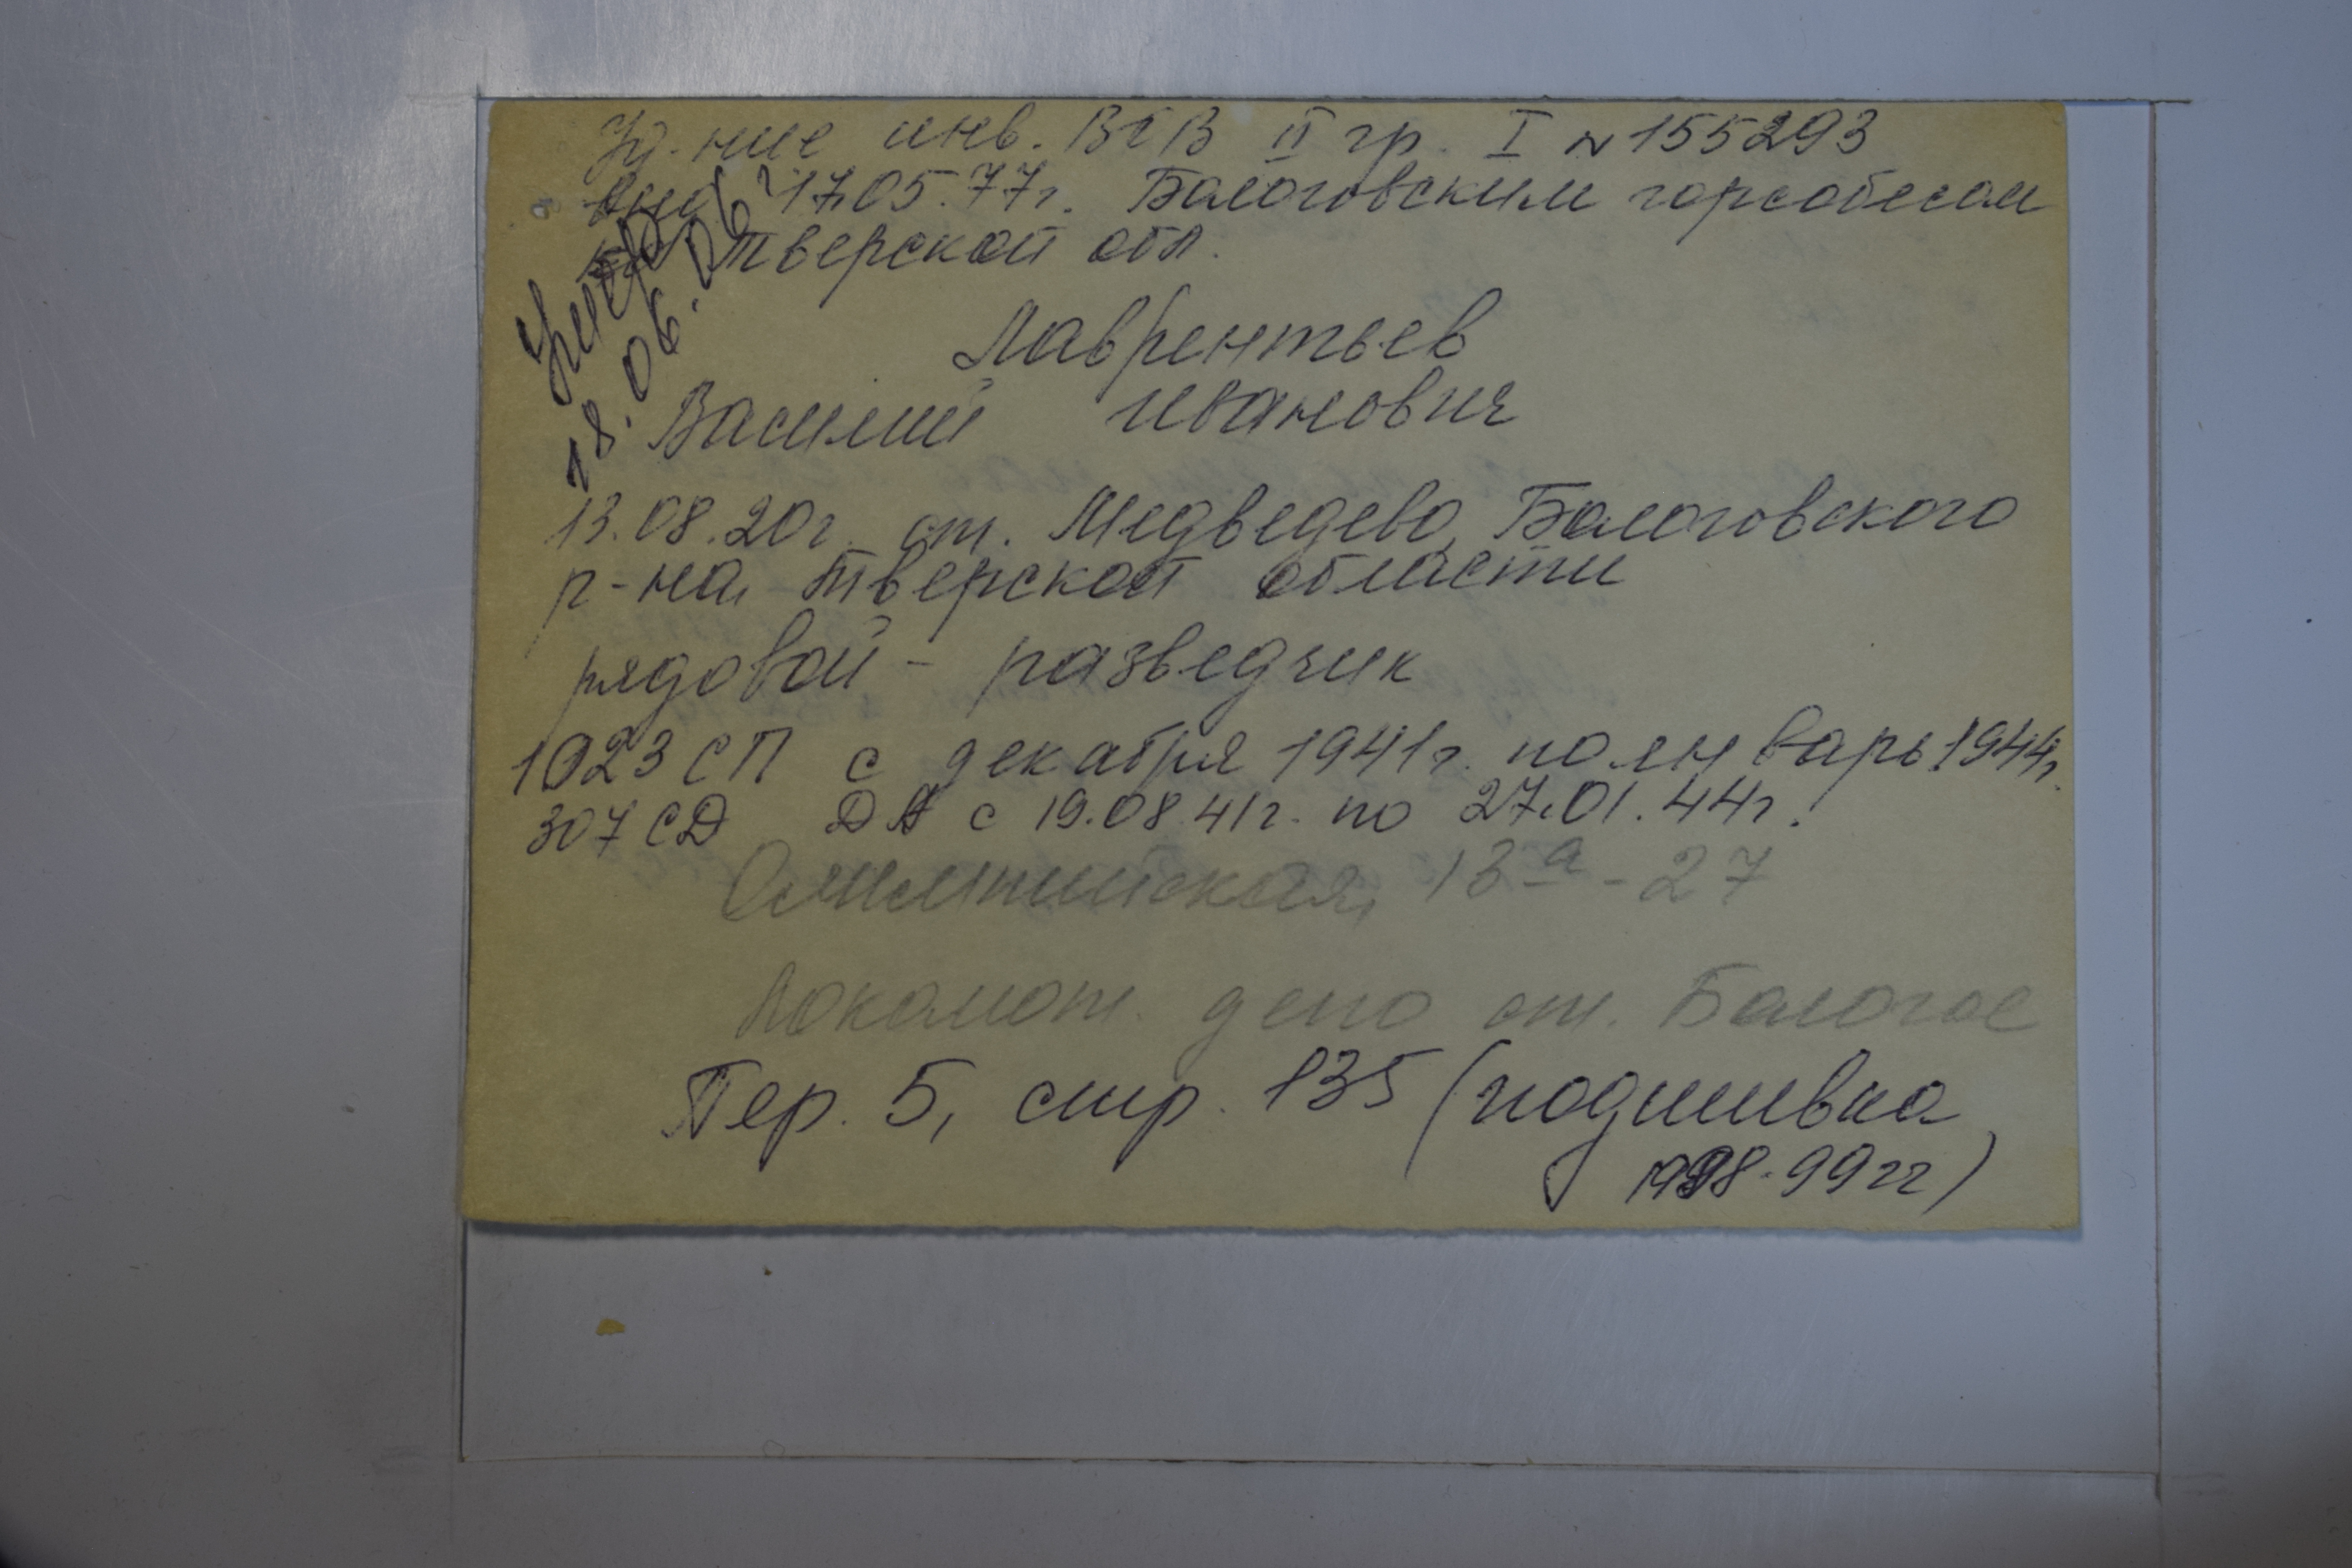 Уд-ние инв. ВОВ II гр. I № 155293
17.05.77г. Бологовским горсобесом
Тверской обл.
Умер
18.06.06г
Лаврентьев
Василий Иванович
13.08.20г. ст. Медведево, Бологовского
р-на, Тверской области
рядовой - разведчик
1023 СП с декабря 1941г. по январь 1944г.
307 СД ДА с 19.08.41г. по 27.01.44г.
Олимпийская, 13а - 27
Локомот. депо ст. Бологое
Пер. 5, стр. 135 (подшивка
1998-99гг)